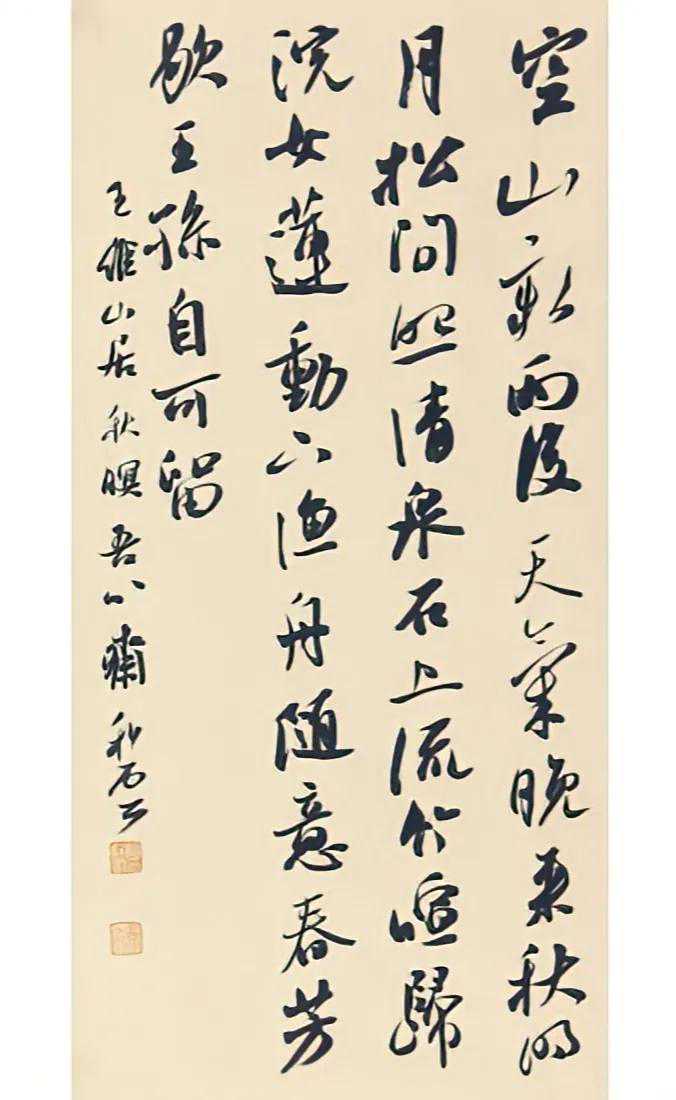 空山新雨後天氣晚來秋明
月松間照清泉石上流竹喧歸
浣女蓮動下漁舟隨意春芳
歇王孫自可留
王維山居秋暝